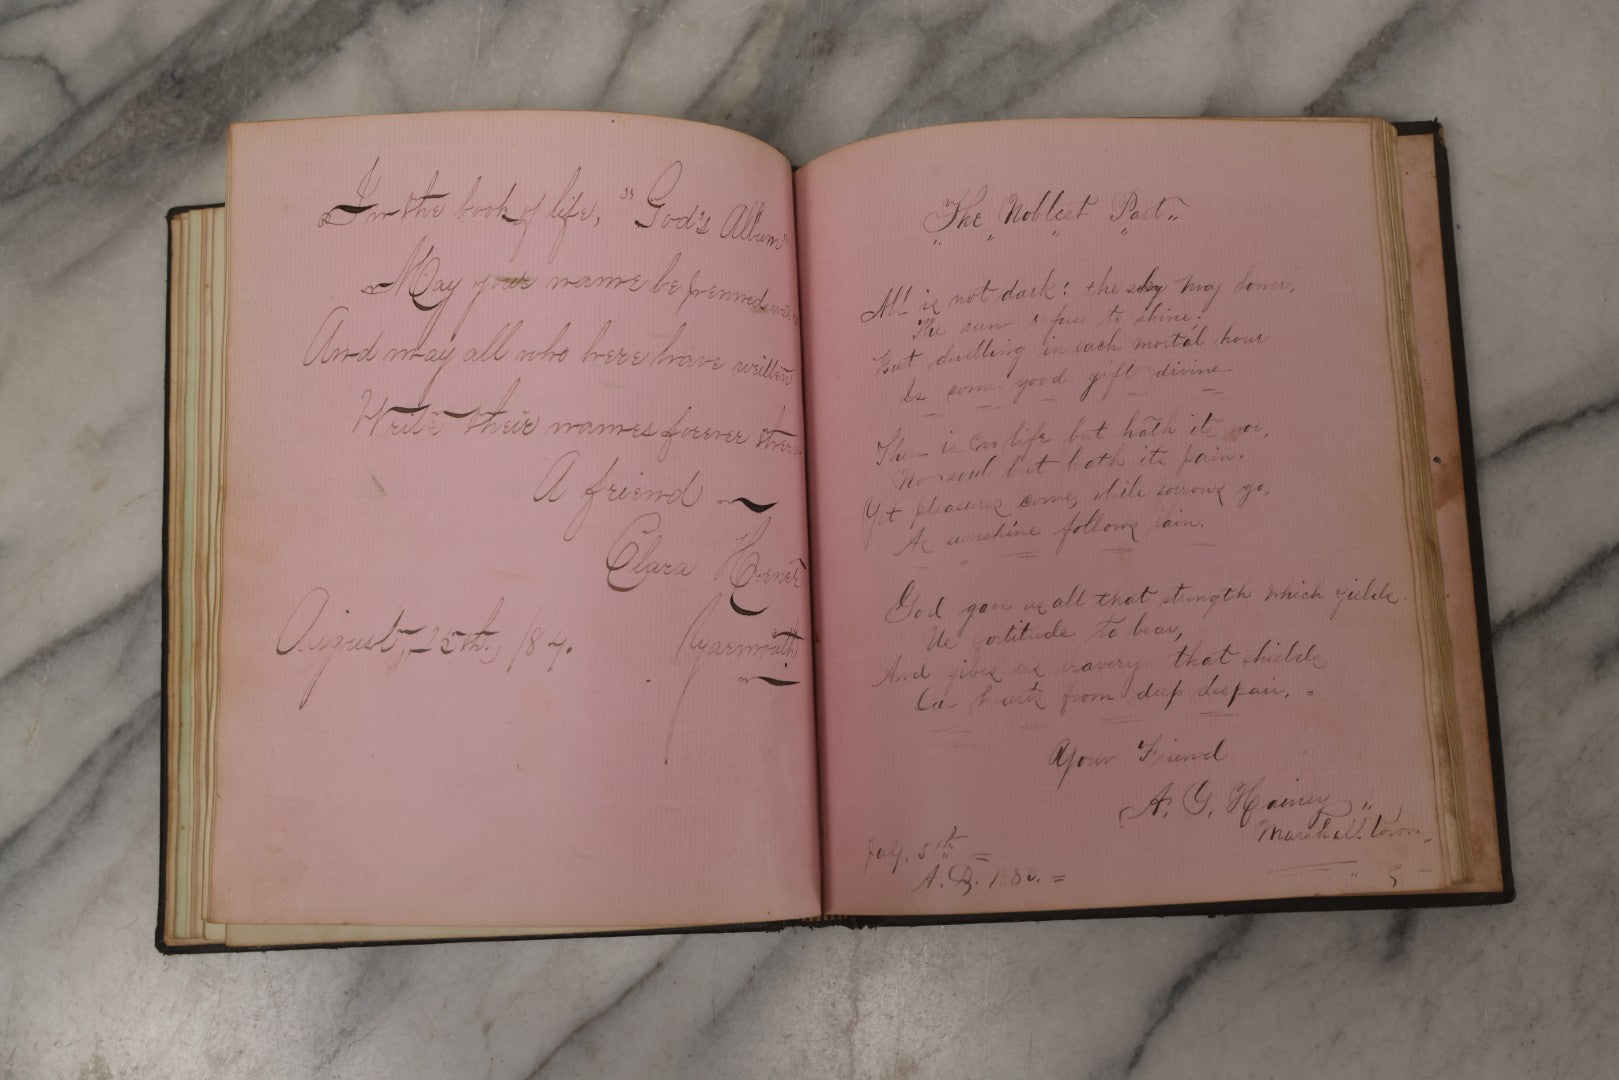 In the book of life, "God's Album"
May your name be penned with care
And may all who here have written
Write their names forever there.
A friend
Clara Horner
August, 25th., /84.
Yarmouth.
"The Noblest Part"
All is not dark: the sky may lower,
The sun refuse to shine:
But dwelling in each mortal hour
Is some good gift divine
There is no life but hath its
No soul but hath its pain.
Yet pleasures come, while sorrows go,
As sunshine follows rain.
God gave us all that strength which yields
Us fortitude to bear,
And gives us bravery that shields
Our hearts from deep despair.
Your Friend
A. G.
Marshalltown
July. 5th
A. D.